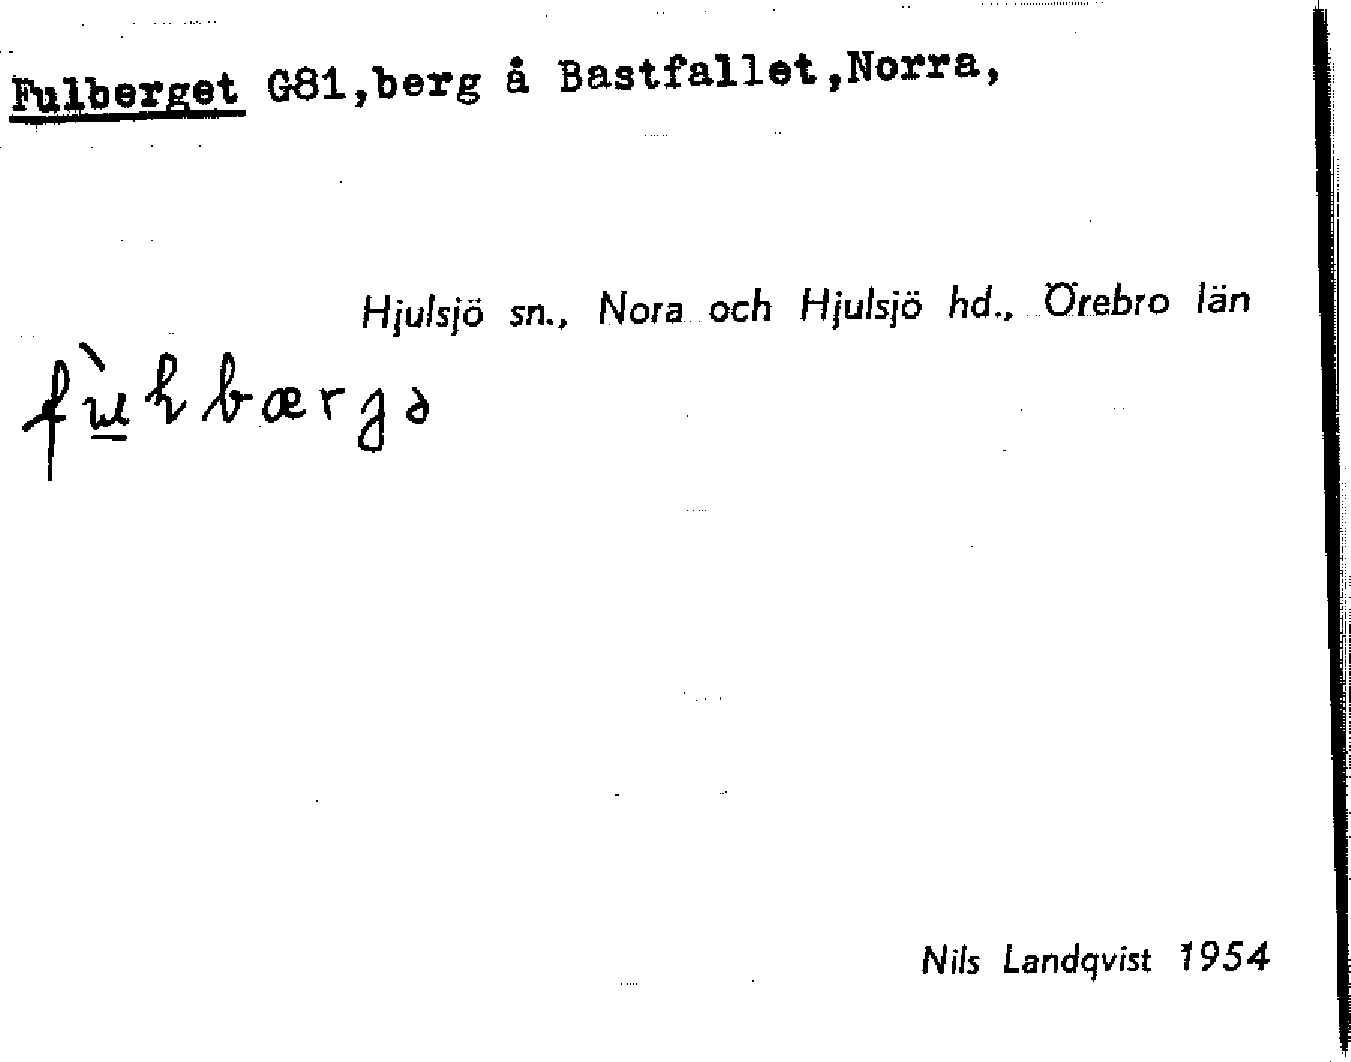 Fulberget G81,berg å Bastfallet,Norra,
Hjulsjö sn., Nora och Hjulsjö hd., Örebro län
Nils Landqvist 1954